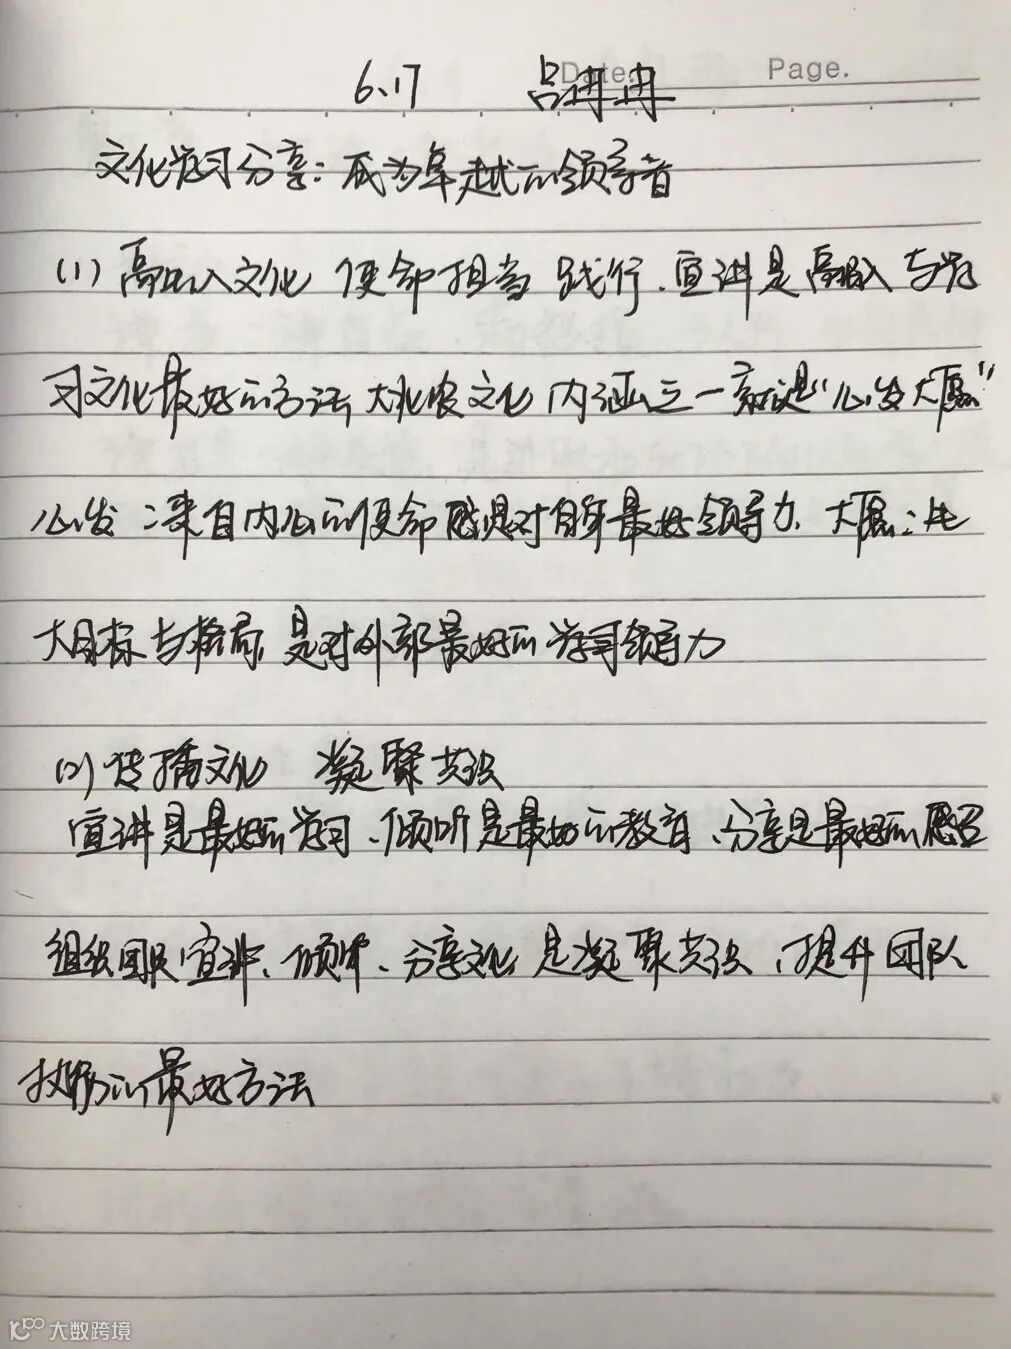 Date.
Page.
6.17 吕冉冉
文化学习分享:成为卓越的领导者
(1)融入文化 使命担当 践行、宣讲是融入与学
习文化最好的方法,大北农文化内涵之一就是“心发大愿”
心发:来自内心的使命感是对自身最好领导力、大愿:
大目标与格局,是对外部最好的领导力
(2)传播文化 凝聚共识
宣讲是最好的学习、倾听是最好的教育、分享是最好的感召
组织团队宣讲、倾听、分享文化是凝聚共识、提升团队
的最好方法
大数跨境